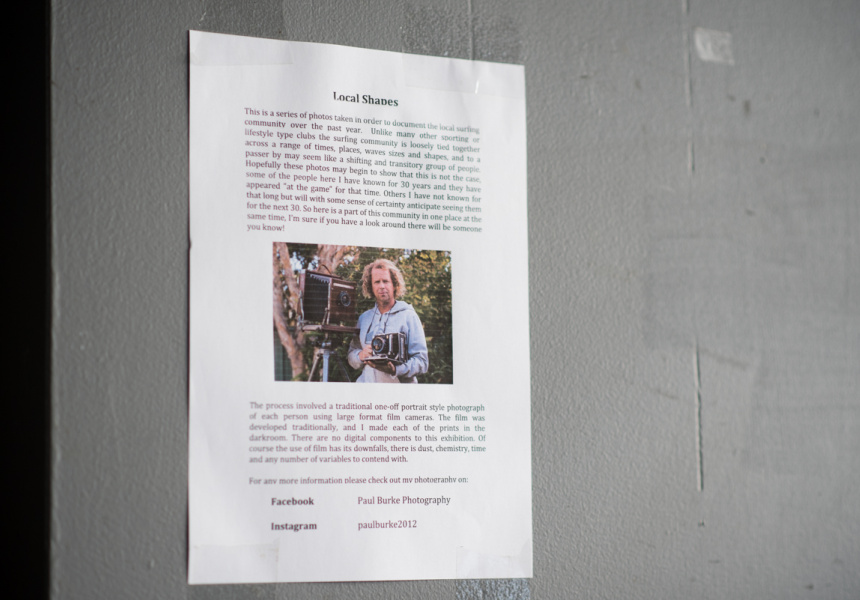 Local Shapes
This is a series of photos taken in order to document the local surfing
community over the past year. Unlike many other sporting or
lifestyle type clubs the surfing community is loosely tied together
across a range of times, places, waves sizes and shapes, and to a
passer by may seem like a shifting and transitory group of people.
Hopefully these photos may begin to show that this is not the case,
some of the people here I have known for 30 years and they have
appeared "at the game" for that time. Others I have not known for
that long but will with some sense of certainty anticipate seeing them
for the next 30. So here is a part of this community in one place at the
same time, I'm sure if you have a look around there will be someone
you know!
The process involved a traditional one-off portrait style photograph
of each person using large format film cameras. The film was
developed traditionally, and I made each of the prints in the
darkroom. There are no digital components to this exhibition. Of
course the use of film has its downfalls, there is dust, chemistry, time
and any number of variables to contend with.
For any more information please check out my photography on:
Facebook Paul Burke Photography
Instagram paulburke2012